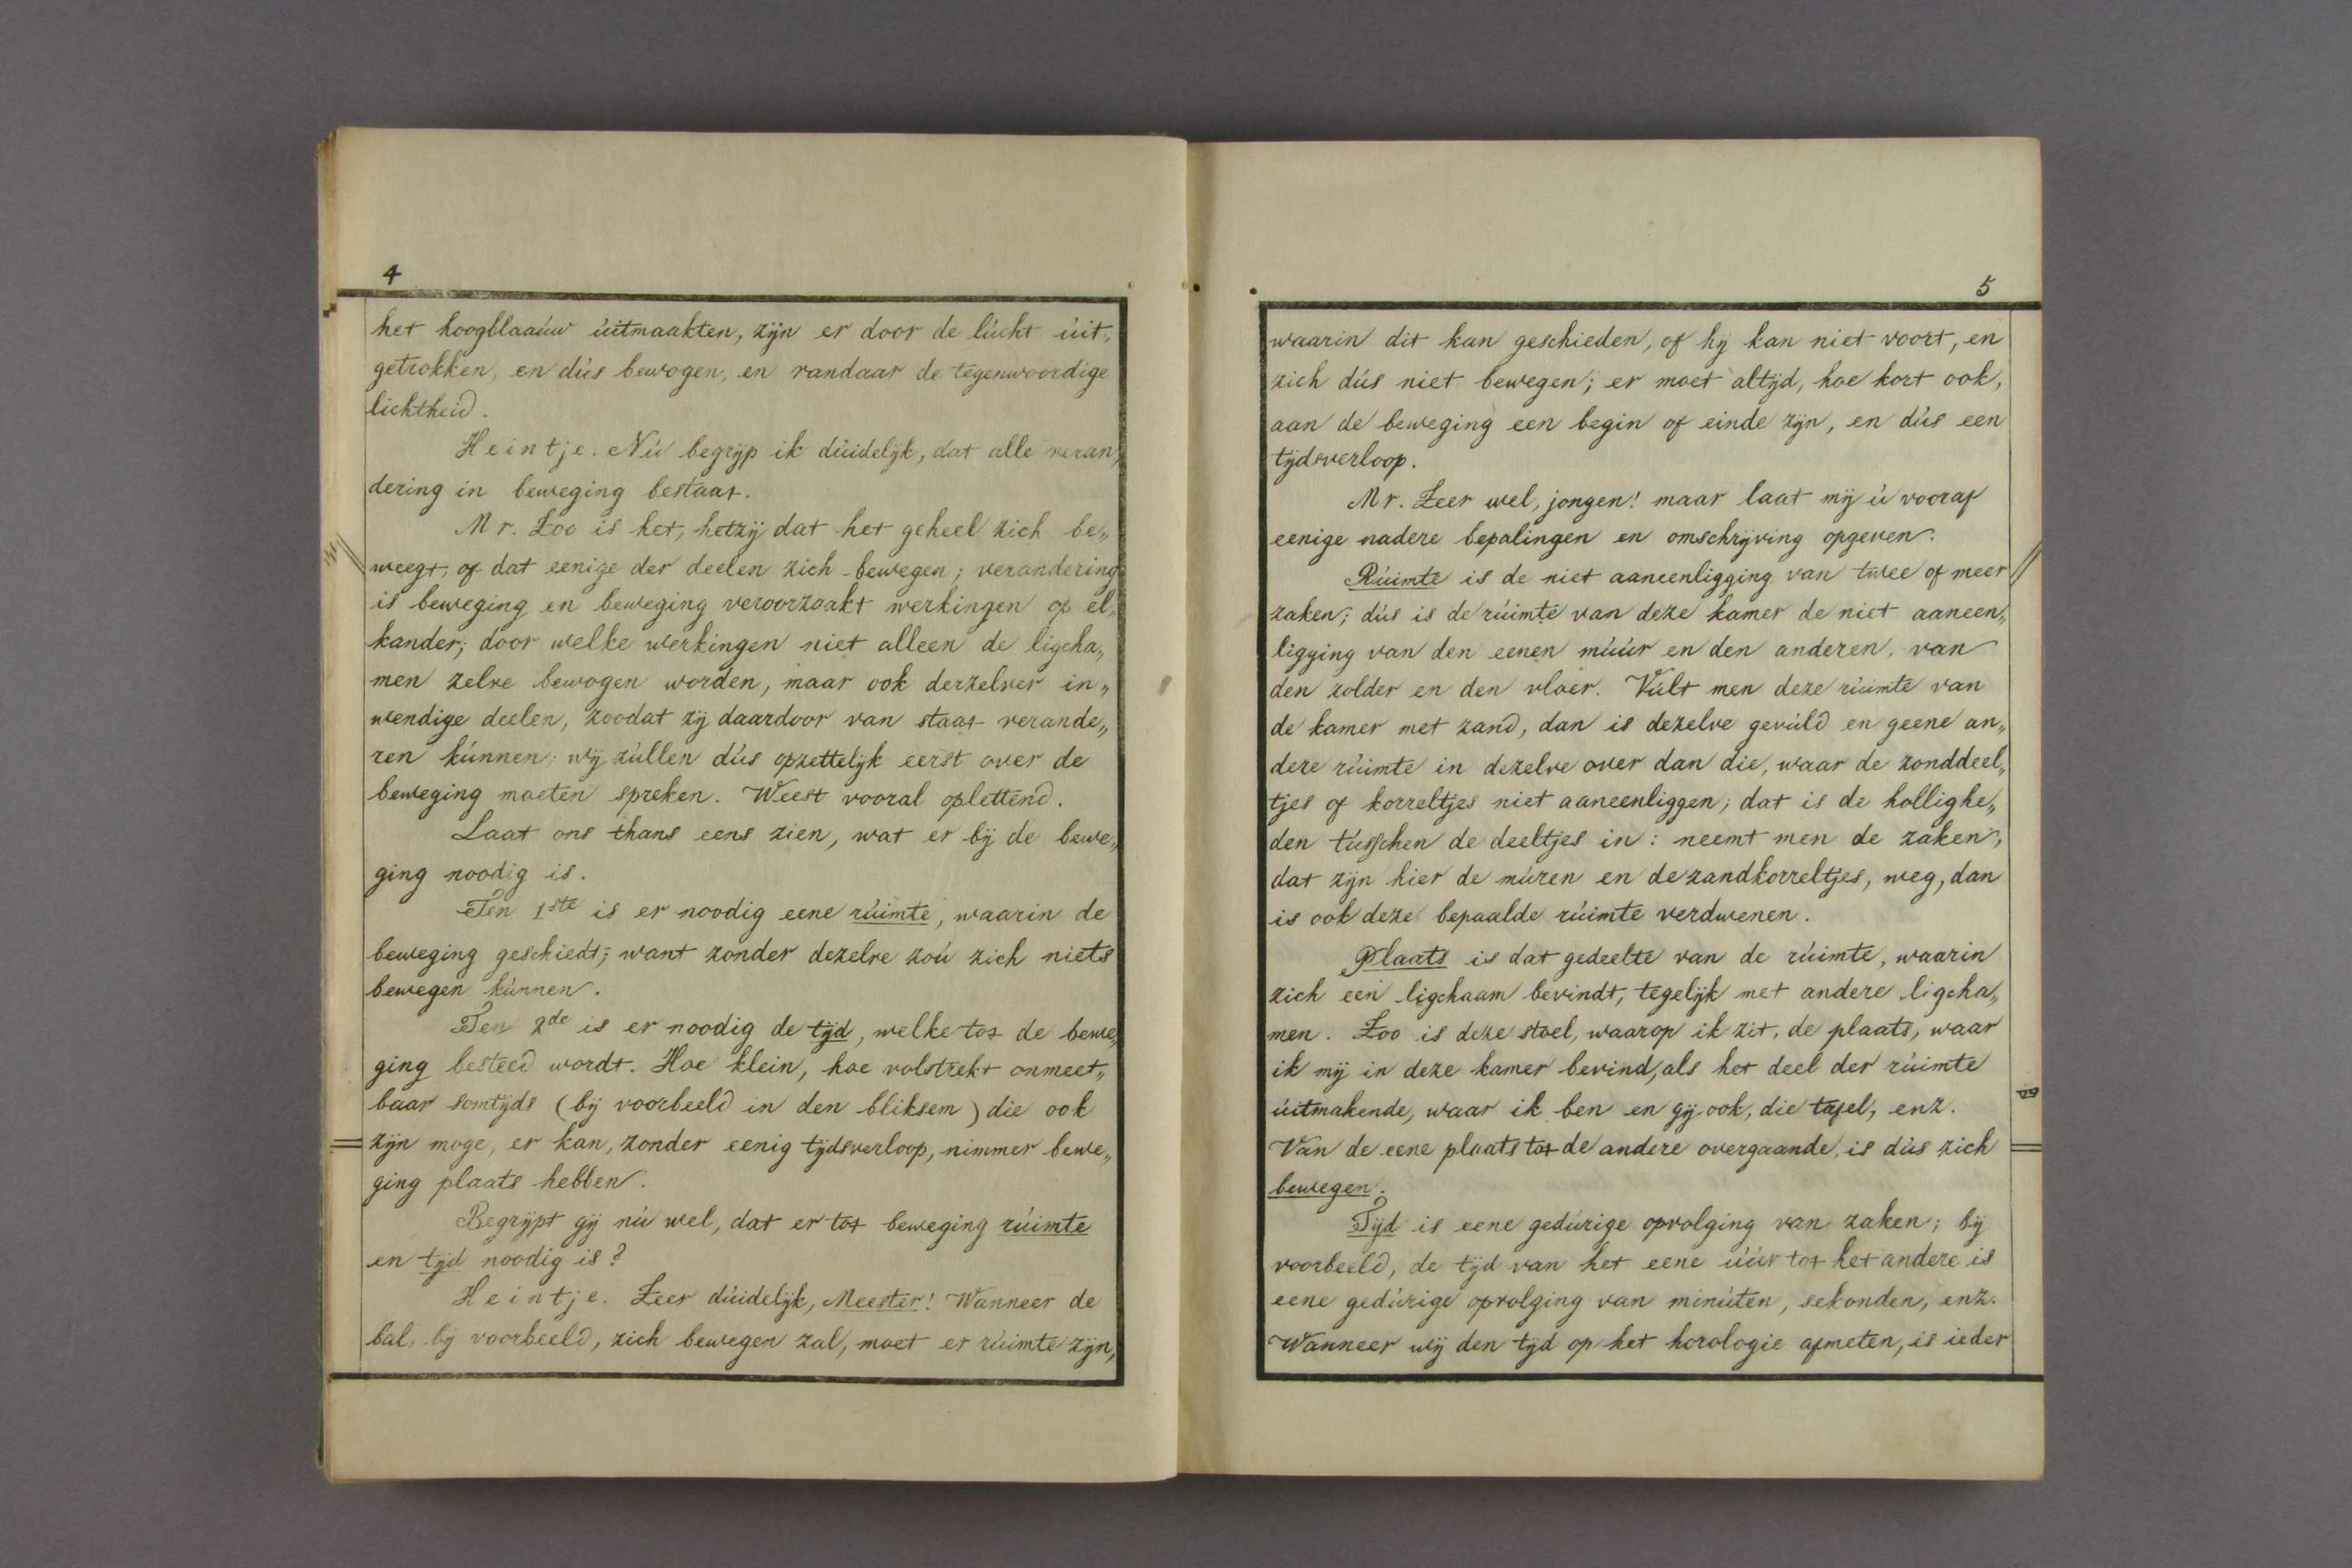 4
het hoogblaaúw úitmaakten, zijn er door de lúcht úit„
getrokken, en dús bewogen, en vandaar de tegenwoordige
lichtheid.
Heintje. Nú begrijp ik dúidelijk, dat alle veran„
dering in beweging bestaat.
Mr. Zoo is het, hetzij dat het geheel zich be„
weegt, of dat eenige der deelen zich bewegen; verandering
is beweging en beweging veroorzaakt werkingen op el„
kander; door welke werkingen niet alleen de ligcha„
men zelve bewogen worden, maar ook derzelver in„
wendige deelen, zoodat zij daardoor van staat verande„
ren kúnnen; wij zúllen dús opzettelijk eerst over de
beweging moeten spreken. Weest vooral oplettend.
Laat ons thans eens zien, wat er bij de bewe„
ging noodig is.
Ten 1ste is er noodig eene rúimte, waarin de
beweging geschiedt; want zonder dezelve zoú zich niets
bewegen kúnnen.
Ten 2de is er noodig de tijd, welke tot de bewe„
ging besteed wordt. Hoe klein, hoe volstrekt onmeet„
baar somtijds (bij voorbeeld in den bliksem) die ook
zijn moge, er kan, zonder eenig tijdsverloop, nimmer bewe„
ging plaats hebben.
Begrijpt gij nú wel, dat er tot beweging rúimte
en tijd noodig is?
Heintje. Zeer dúidelijk, Meester! Wanneer de
bal, bij voorbeeld, zich bewegen zal, moet er rúimte zijn,
5
waarin dit kan geschieden, of hij kan niet voort, en
zich dús niet bewegen; er moet altijd, hoe kort ook,
aan de beweging een begin of einde zijn, en dús een
tijdsverloop.
Mr. Zeer wel, jongen! maar laat mij ú vooraf
eenige nadere bepalingen en omschrijving opgeven.
Rúimte is de niet aaneenligging van twee of meer
zaken; dús is de rúimte van deze kamer de niet aaneen„
ligging van den eenen múúr en den anderen, van
den zolder en den vloer. Vúlt men deze rúimte van
de kamer met zand, dan is dezelve gevúld en geene an„
dere rúimte in dezelve over dan die, waar de zonddeel„
tjes of korreltjes niet aaneenliggen; dat is de hollighe„
den tússchen de deeltjes in: neemt men de zaken,
dat zijn hier de múren en de zandkorreltjes, weg, dan
is ook deze bepaalde rúimte verdwenen.
Plaats is dat gedeelte van de rúimte, waarin
zich een ligchaam bevindt, tegelijk met andere ligcha„
men. Zoo is deze stoel, waarop ik zit, de plaats, waar
ik mij in deze kamer bevind, als het deel der rúimte
úitmakende, waar ik ben en gij ook, die tafel, enz.
Van de eene plaats tot de andere overgaande, is dús zich
bewegen.
Tijd is eene gedúrige opvolging van zaken; bij
voorbeeld, de tijd van het eene úúr tot het andere is
eene gedúrige opvolging van minúten, sekonden, enz.
Wanneer wij den tijd op het horologie afmeten, is ieder